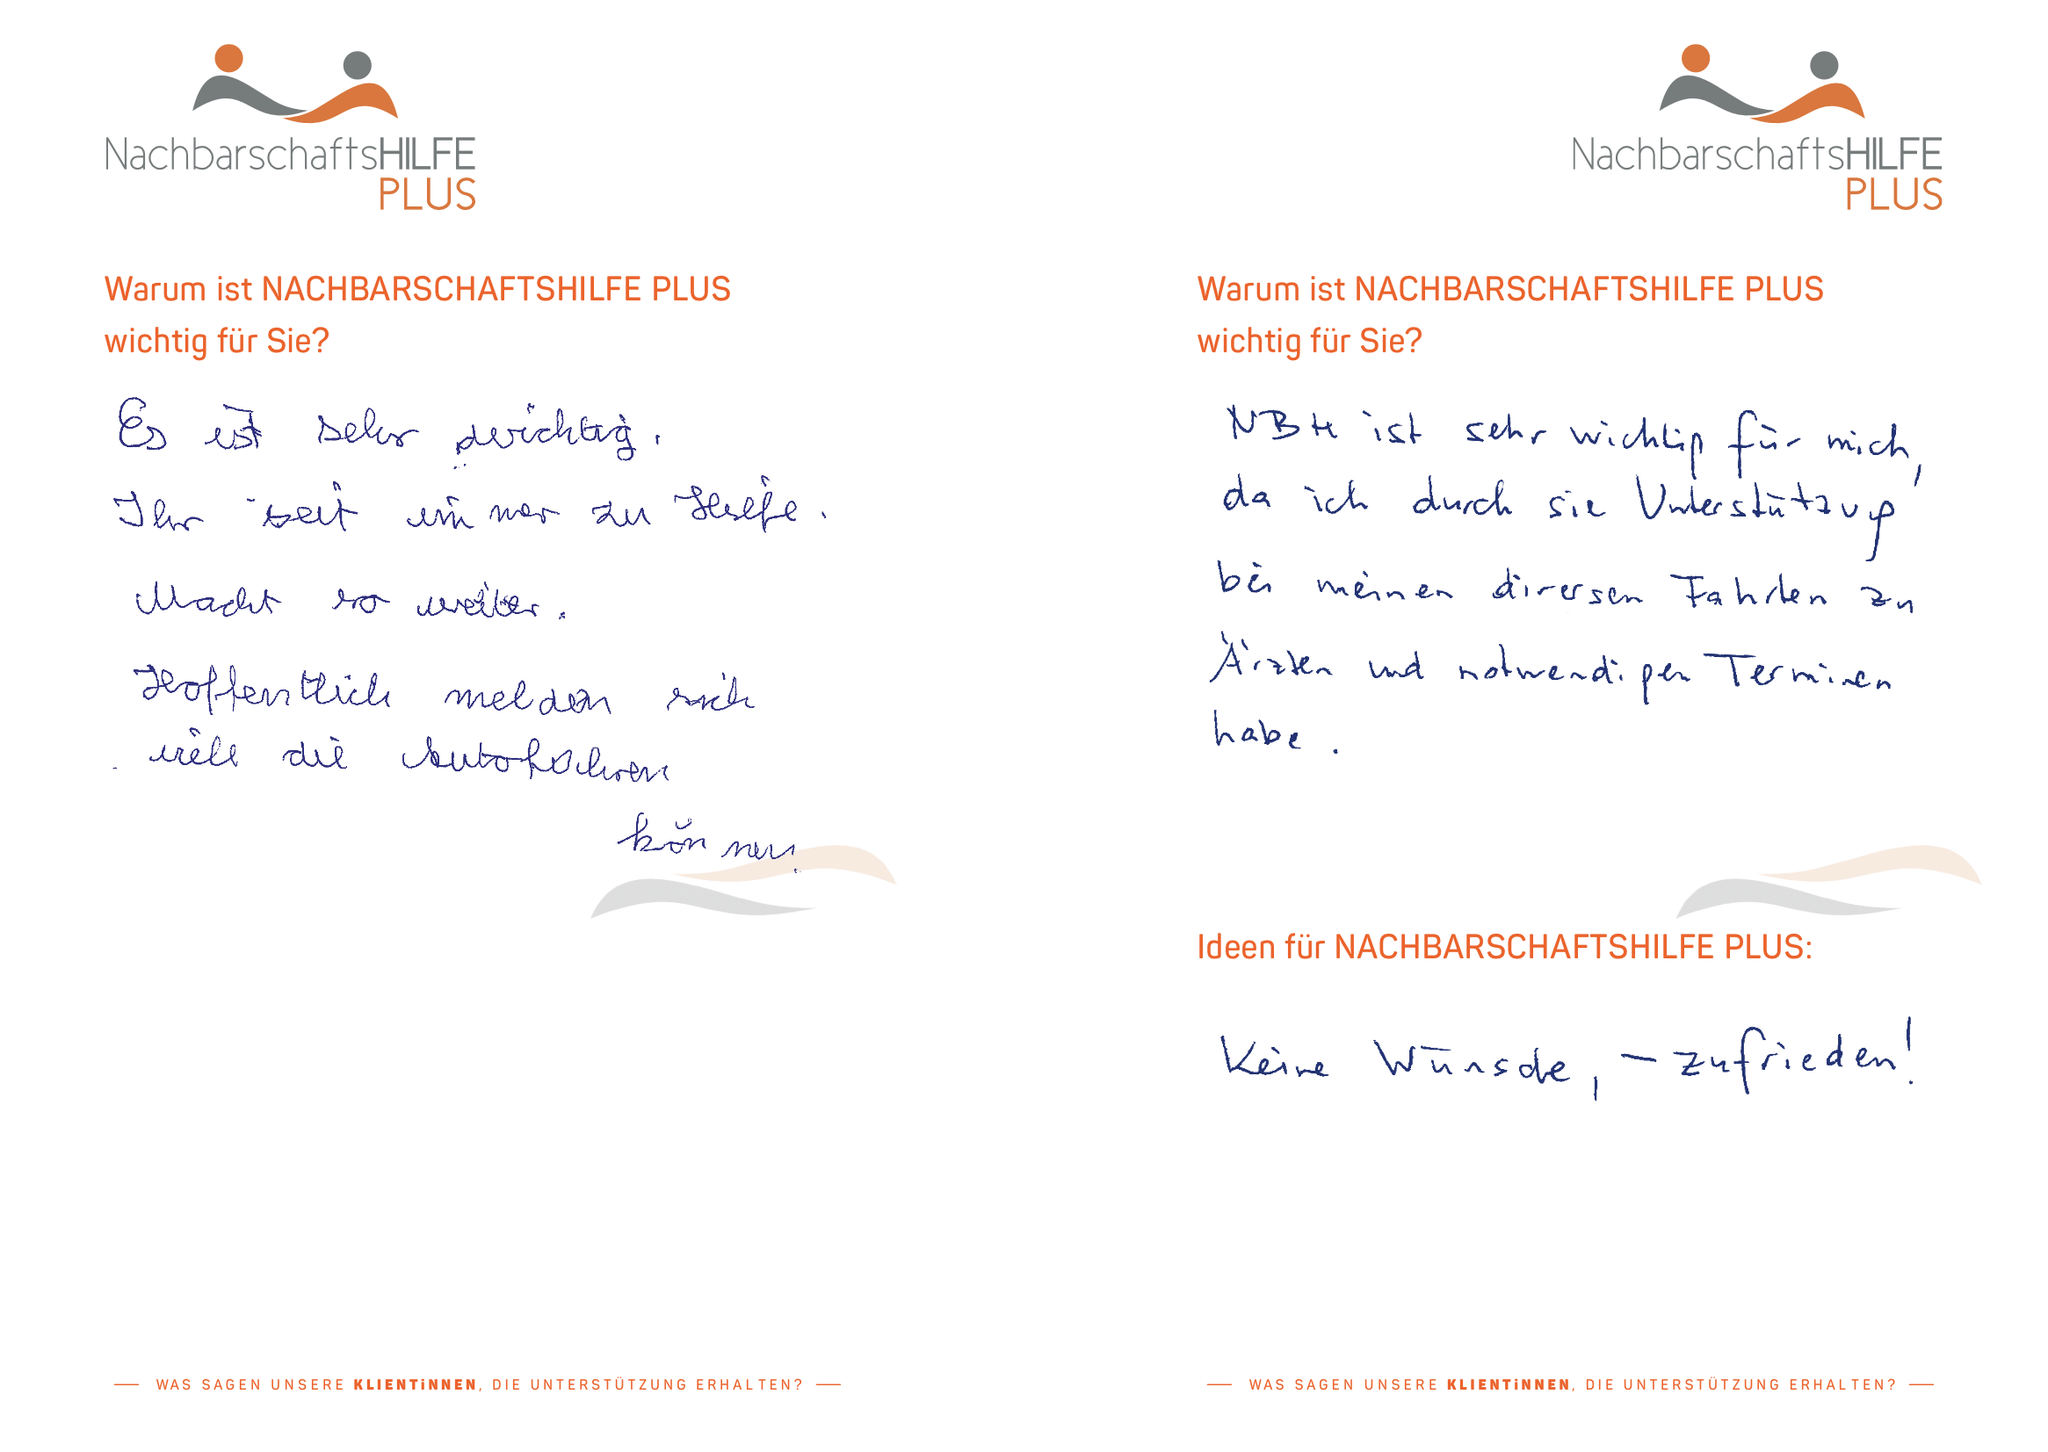 NachbarschaftsHILFE
PLUS
Warum ist NACHBARSCHAFTSHILFE PLUS
wichtig für Sie?
Es ist sehr wichtig.
Ihr seit immer zu Hilfe.
Macht so weiter.
Hoffentlich melden sich
viele die Autofahren
können
— WAS SAGEN UNSERE KLIENTiNNEN, DIE UNTERSTÜTZUNG ERHALTEN? —
NachbarschaftsHILFE
PLUS
Warum ist NACHBARSCHAFTSHILFE PLUS
wichtig für Sie?
NBH ist sehr wichtig für mich,
da ich durch sie Unterstützung
bei meinen diversen Fahrten zu
Ärzten und notwendigen Terminen
habe.
Ideen für NACHBARSCHAFTSHILFE PLUS:
Keine Wünsche, – zufrieden!
— WAS SAGEN UNSERE KLIENTiNNEN, DIE UNTERSTÜTZUNG ERHALTEN? —